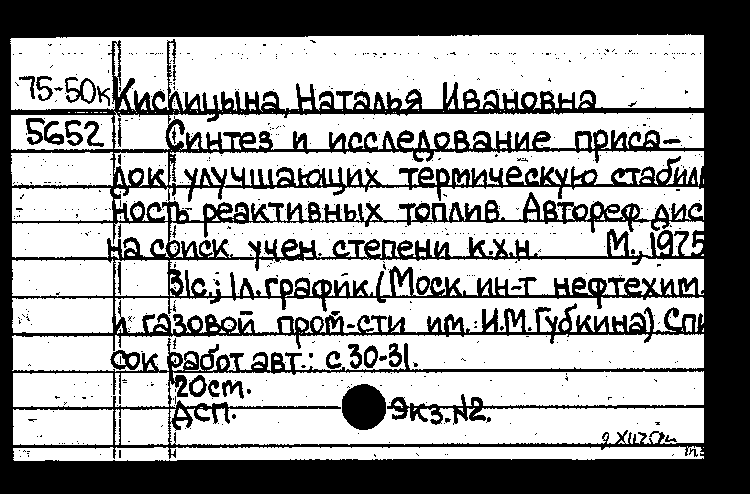 75-50к Кислицына, Наталья Ивановна
5652 Синтез и исследование приса-
док, улучшающих термическую стабиль
ность реактивных топлив. Автореф дис
на соиск. учен. степени к.х.н. М., 1975
31с.; 1л. график. (Моск. ин-т нефтехим.
и газовой пром-сти им. И.М. Губкина) Спи
сок работ авт.: с. 30-31.
20см.
ДСП. Экз. №2.